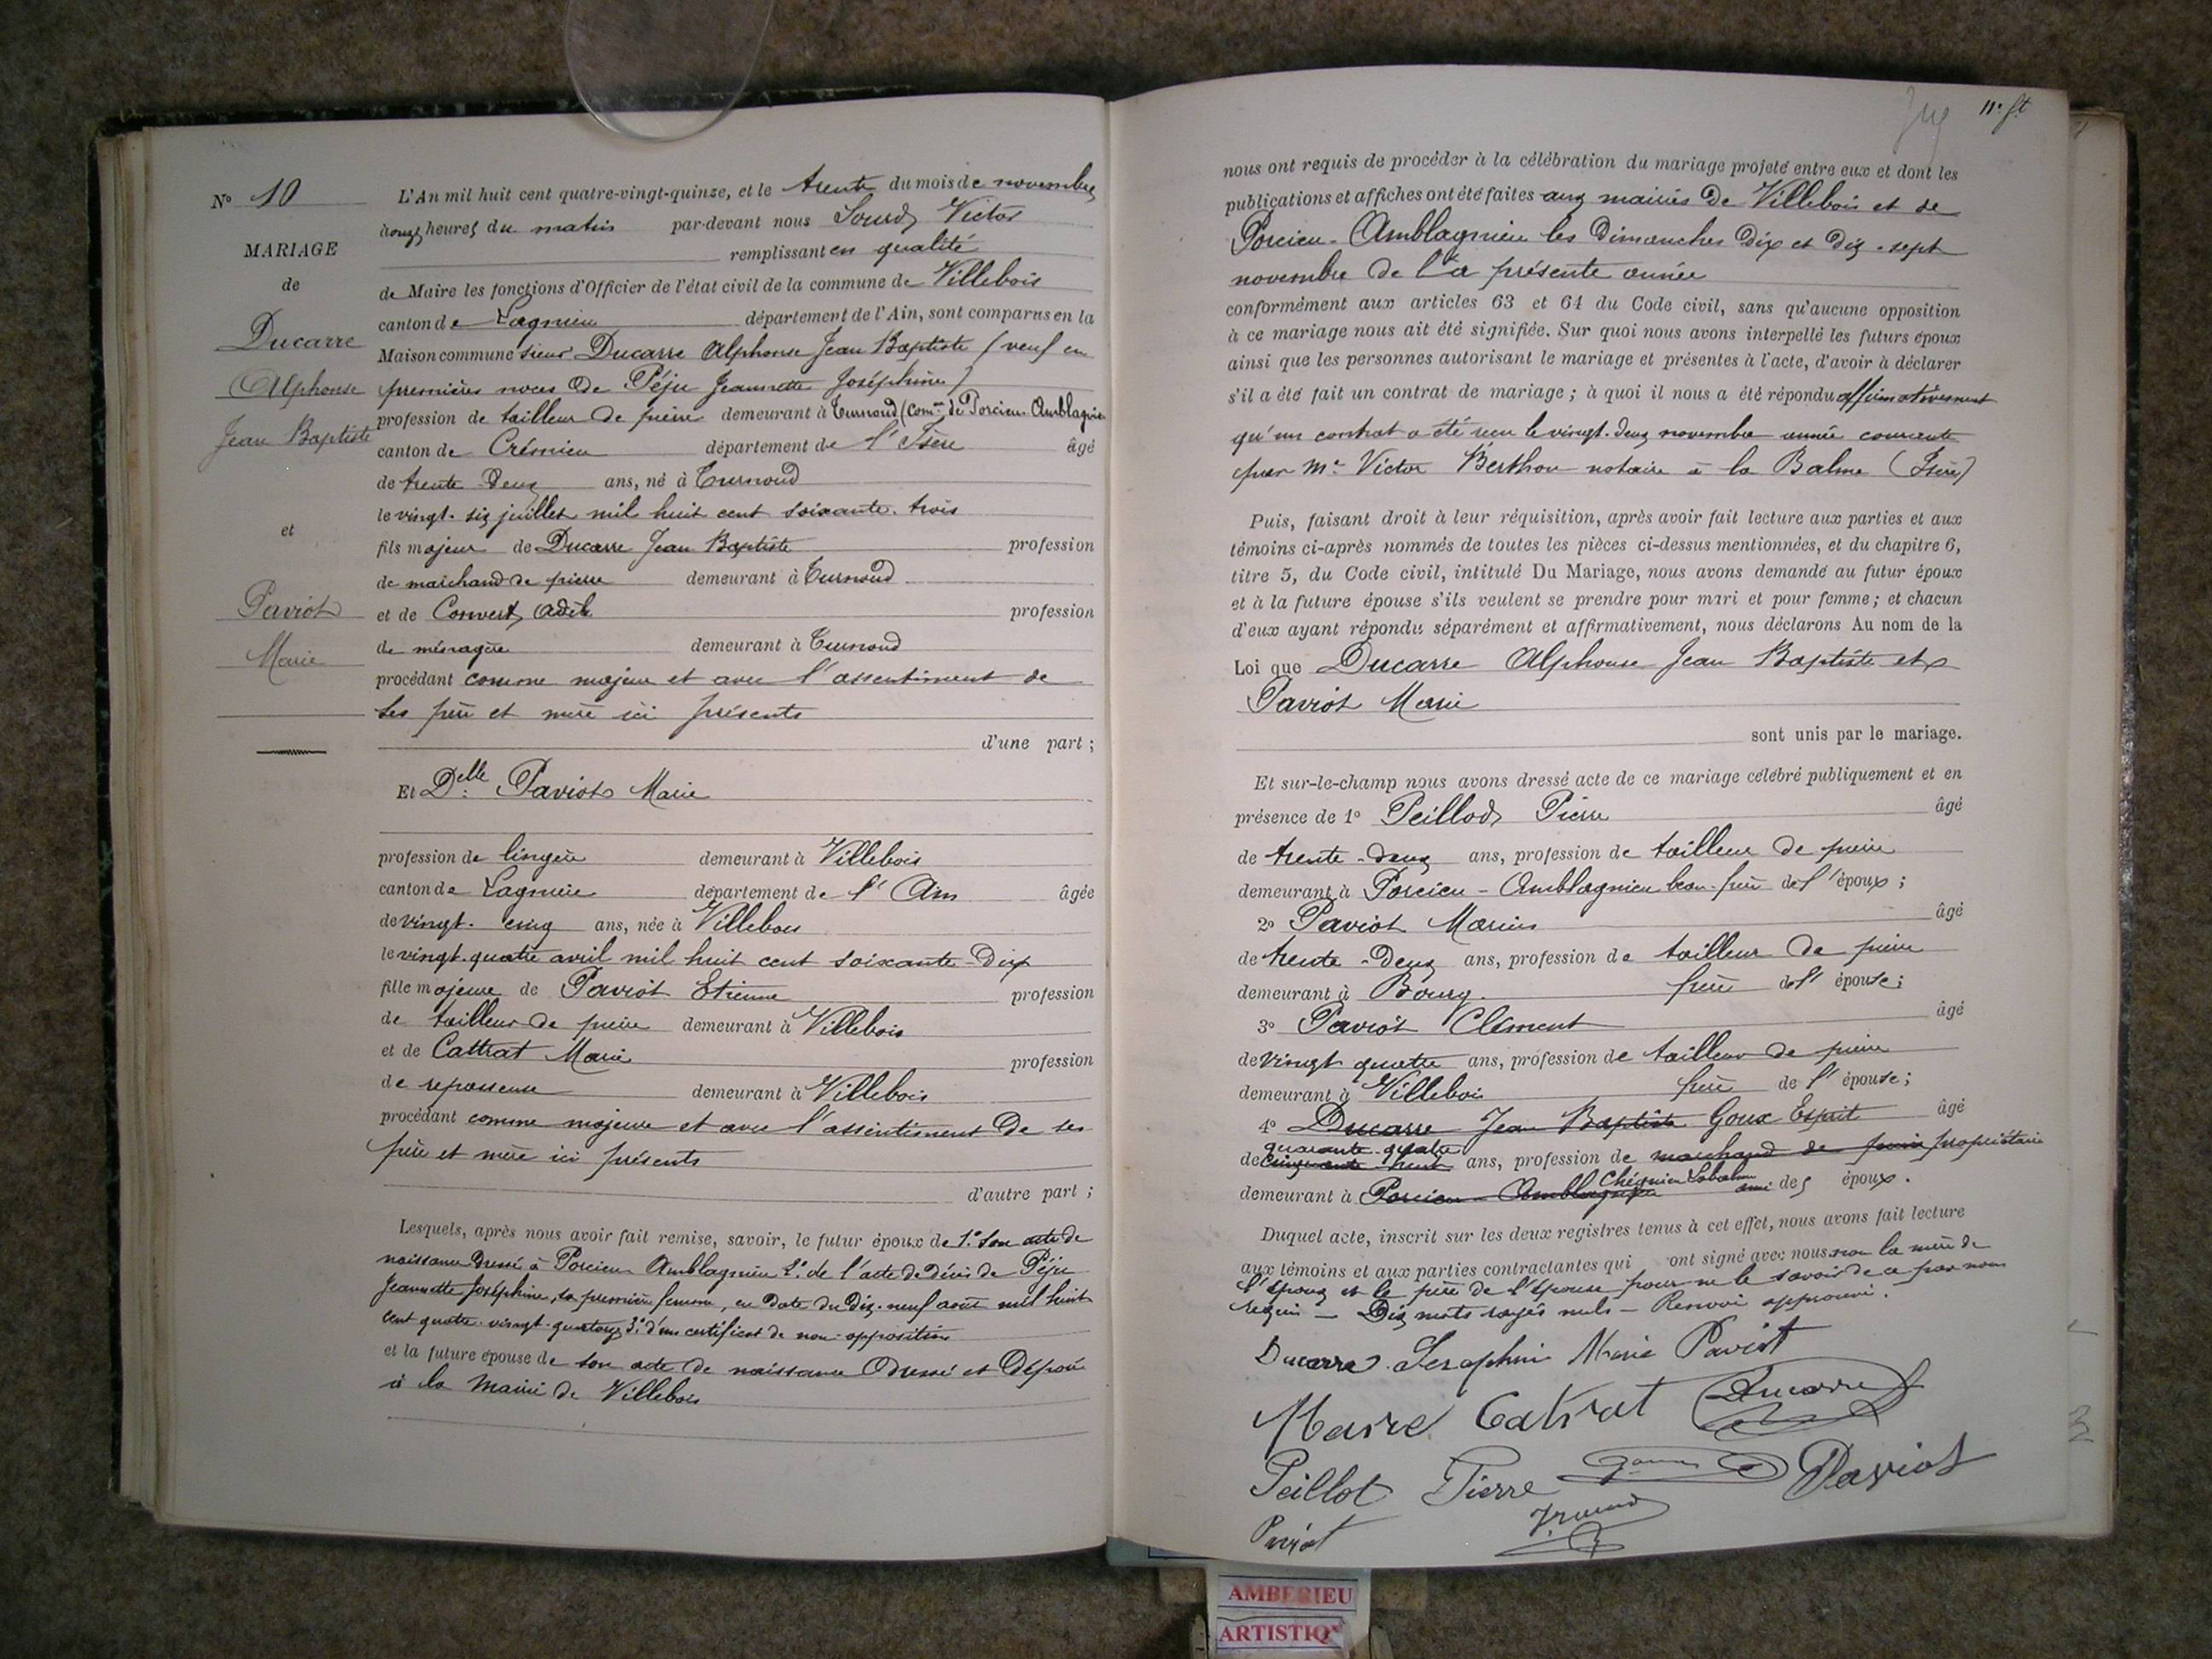 N° 10
MARIAGE
de
Ducarre
Alphonse
Jean Baptiste
et
Paviot
Marie
L'An mil huit cent quatre-vingt-quinze, et le trente du mois de novembre
à onze heures du matin par-devant nous Sourd Victor
remplissant en qualité
de Maire les fonctions d'Officier de l'état civil de la commune de Villebois
canton de Lagnieu département de l'Ain, sont comparus en la
Maison commune sieur Ducarre Alphonse Jean Baptiste (veuf en
premières noces de Péju Jeannette Joséphine)
profession de tailleur de pierre demeurant à Turnoud (Comne de Porcieu-Amblagnieu
canton de Crémieu département de l'Isère âgé
de trente-deux ans, né à Turnoud
le vingt-six juillet mil huit cent soixante-trois
fils majeur de Ducarre Jean Baptiste profession
de marchand de pierre demeurant à Turnoud
et de Convert Adèle profession
de ménagère demeurant à Turnoud
procédant comme majeur et avec l'assentiment de
ses père et mère ici présents
d'une part ;
Et Delle Paviot Marie
profession de lingère demeurant à Villebois
canton de Lagnieu département de l'Ain âgée
de vingt-cinq ans, née à Villebois
le vingt-quatre avril mil huit cent soixante-dix
fille majeure de Paviot Etienne profession
de tailleur de pierre demeurant à Villebois
et de Cattrat Marie profession
de repasseuse demeurant à Villebois
procédant comme majeure et avec l'assentiment de ses
père et mère ici présents
d'autre part ;
Lesquels, après nous avoir fait remise, savoir, le futur époux de 1° son acte de
naissance dressé à Porcieu Amblagnieu 2° de l'acte de décès de Péju
Jeannette Joséphine, sa première femme, en date du dix-neuf août mil huit
cent quatre-vingt-quatorze 3° d'un certificat de non-opposition
et la future épouse de son acte de naissance dressé et déposé
à la Mairie de Villebois
11e ft
nous ont requis de procéder à la célébration du mariage projeté entre eux et dont les
publications et affiches ont été faites aux mairies de Villebois et de
Porcieu-Amblagnieu les Dimanches dix et dix-sept
novembre de la présente année
conformément aux articles 63 et 64 du Code civil, sans qu'aucune opposition
à ce mariage nous ait été signifiée. Sur quoi nous avons interpellé les futurs époux
ainsi que les personnes autorisant le mariage et présentes à l'acte, d'avoir à déclarer
s'il a été fait un contrat de mariage ; à quoi il nous a été répondu affirmativement
qu'un contrat a été reçu le vingt-deux novembre année courante
par Me Victor Berthon notaire à la Balme (Isère)
Puis, faisant droit à leur réquisition, après avoir fait lecture aux parties et aux
témoins ci-après nommés de toutes les pièces ci-dessus mentionnées, et du chapitre 6,
titre 5, du Code civil, intitulé Du Mariage, nous avons demandé au futur époux
et à la future épouse s'ils veulent se prendre pour mari et pour femme ; et chacun
d'eux ayant répondu séparément et affirmativement, nous déclarons Au nom de la
Loi que Ducarre Alphonse Jean Baptiste et
Paviot Marie
sont unis par le mariage.
Et sur-le-champ nous avons dressé acte de ce mariage célébré publiquement et en
présence de 1° Peillod Pierre âgé
de trente-deux ans, profession de tailleur de pierre
demeurant à Porcieu-Amblagnieu beau-frère de l'époux ;
2° Paviot Marius âgé
de trente-deux ans, profession de tailleur de pierre
demeurant à Bourg. frère de l'épouse ;
3° Paviot Clément âgé
de vingt quatre ans, profession de tailleur de pierre
demeurant à Villebois frère de l'épouse ;
4° Ducarre Jean Baptiste Goux Esprit âgé
quarante-quatre
de cinquante-huit ans, profession de marchand de pierre propriétaire
demeurant à Porcieu-Amblagnieu ami des époux.
Duquel acte, inscrit sur les deux registres tenus à cet effet, nous avons fait lecture
aux témoins et aux parties contractantes qui ont signé avec nous non la mère de
l'époux et le père de l'épouse pour ne le savoir de ce par nous
requis — Dix mots rayés nuls — Renvoi approuvé.
Ducarre Seraphin Marie Paviot
Marie Catrat Ducarre
Peillot Pierre Goux Paviot
Paviot
AMBERIEU
ARTISTIQ